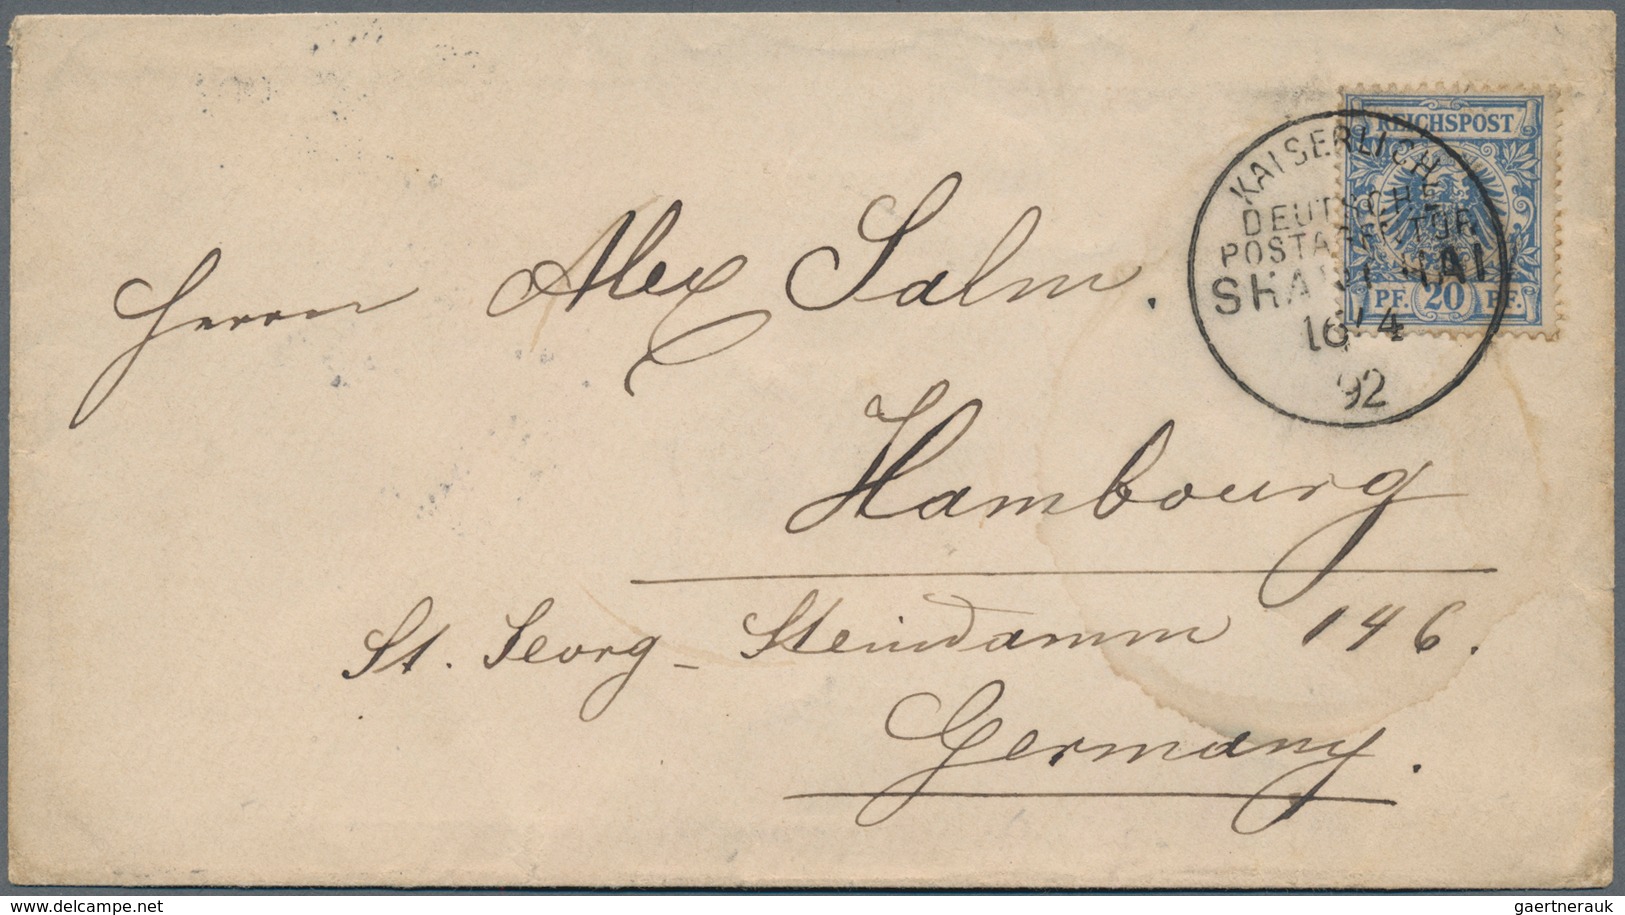 REICHSPOST
PF. 20 PF.
KAISERLICHE
DEUTSCHE
POSTAGENTUR
SHANGHAI
16/4
92
Herrn Alex Salm.
Hambourg
St. Georg - Steindamm 146.
Germany.
www.delcampe.net
gaertnerauk